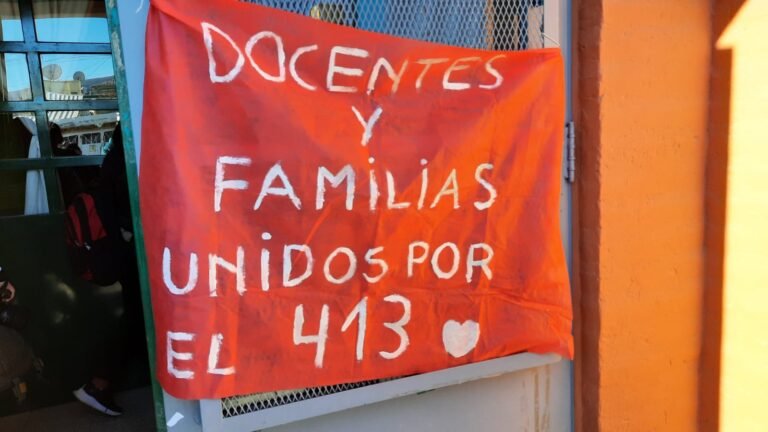 DOCENTES
Y
FAMiLiAS
UNiDOS POR
EL 413